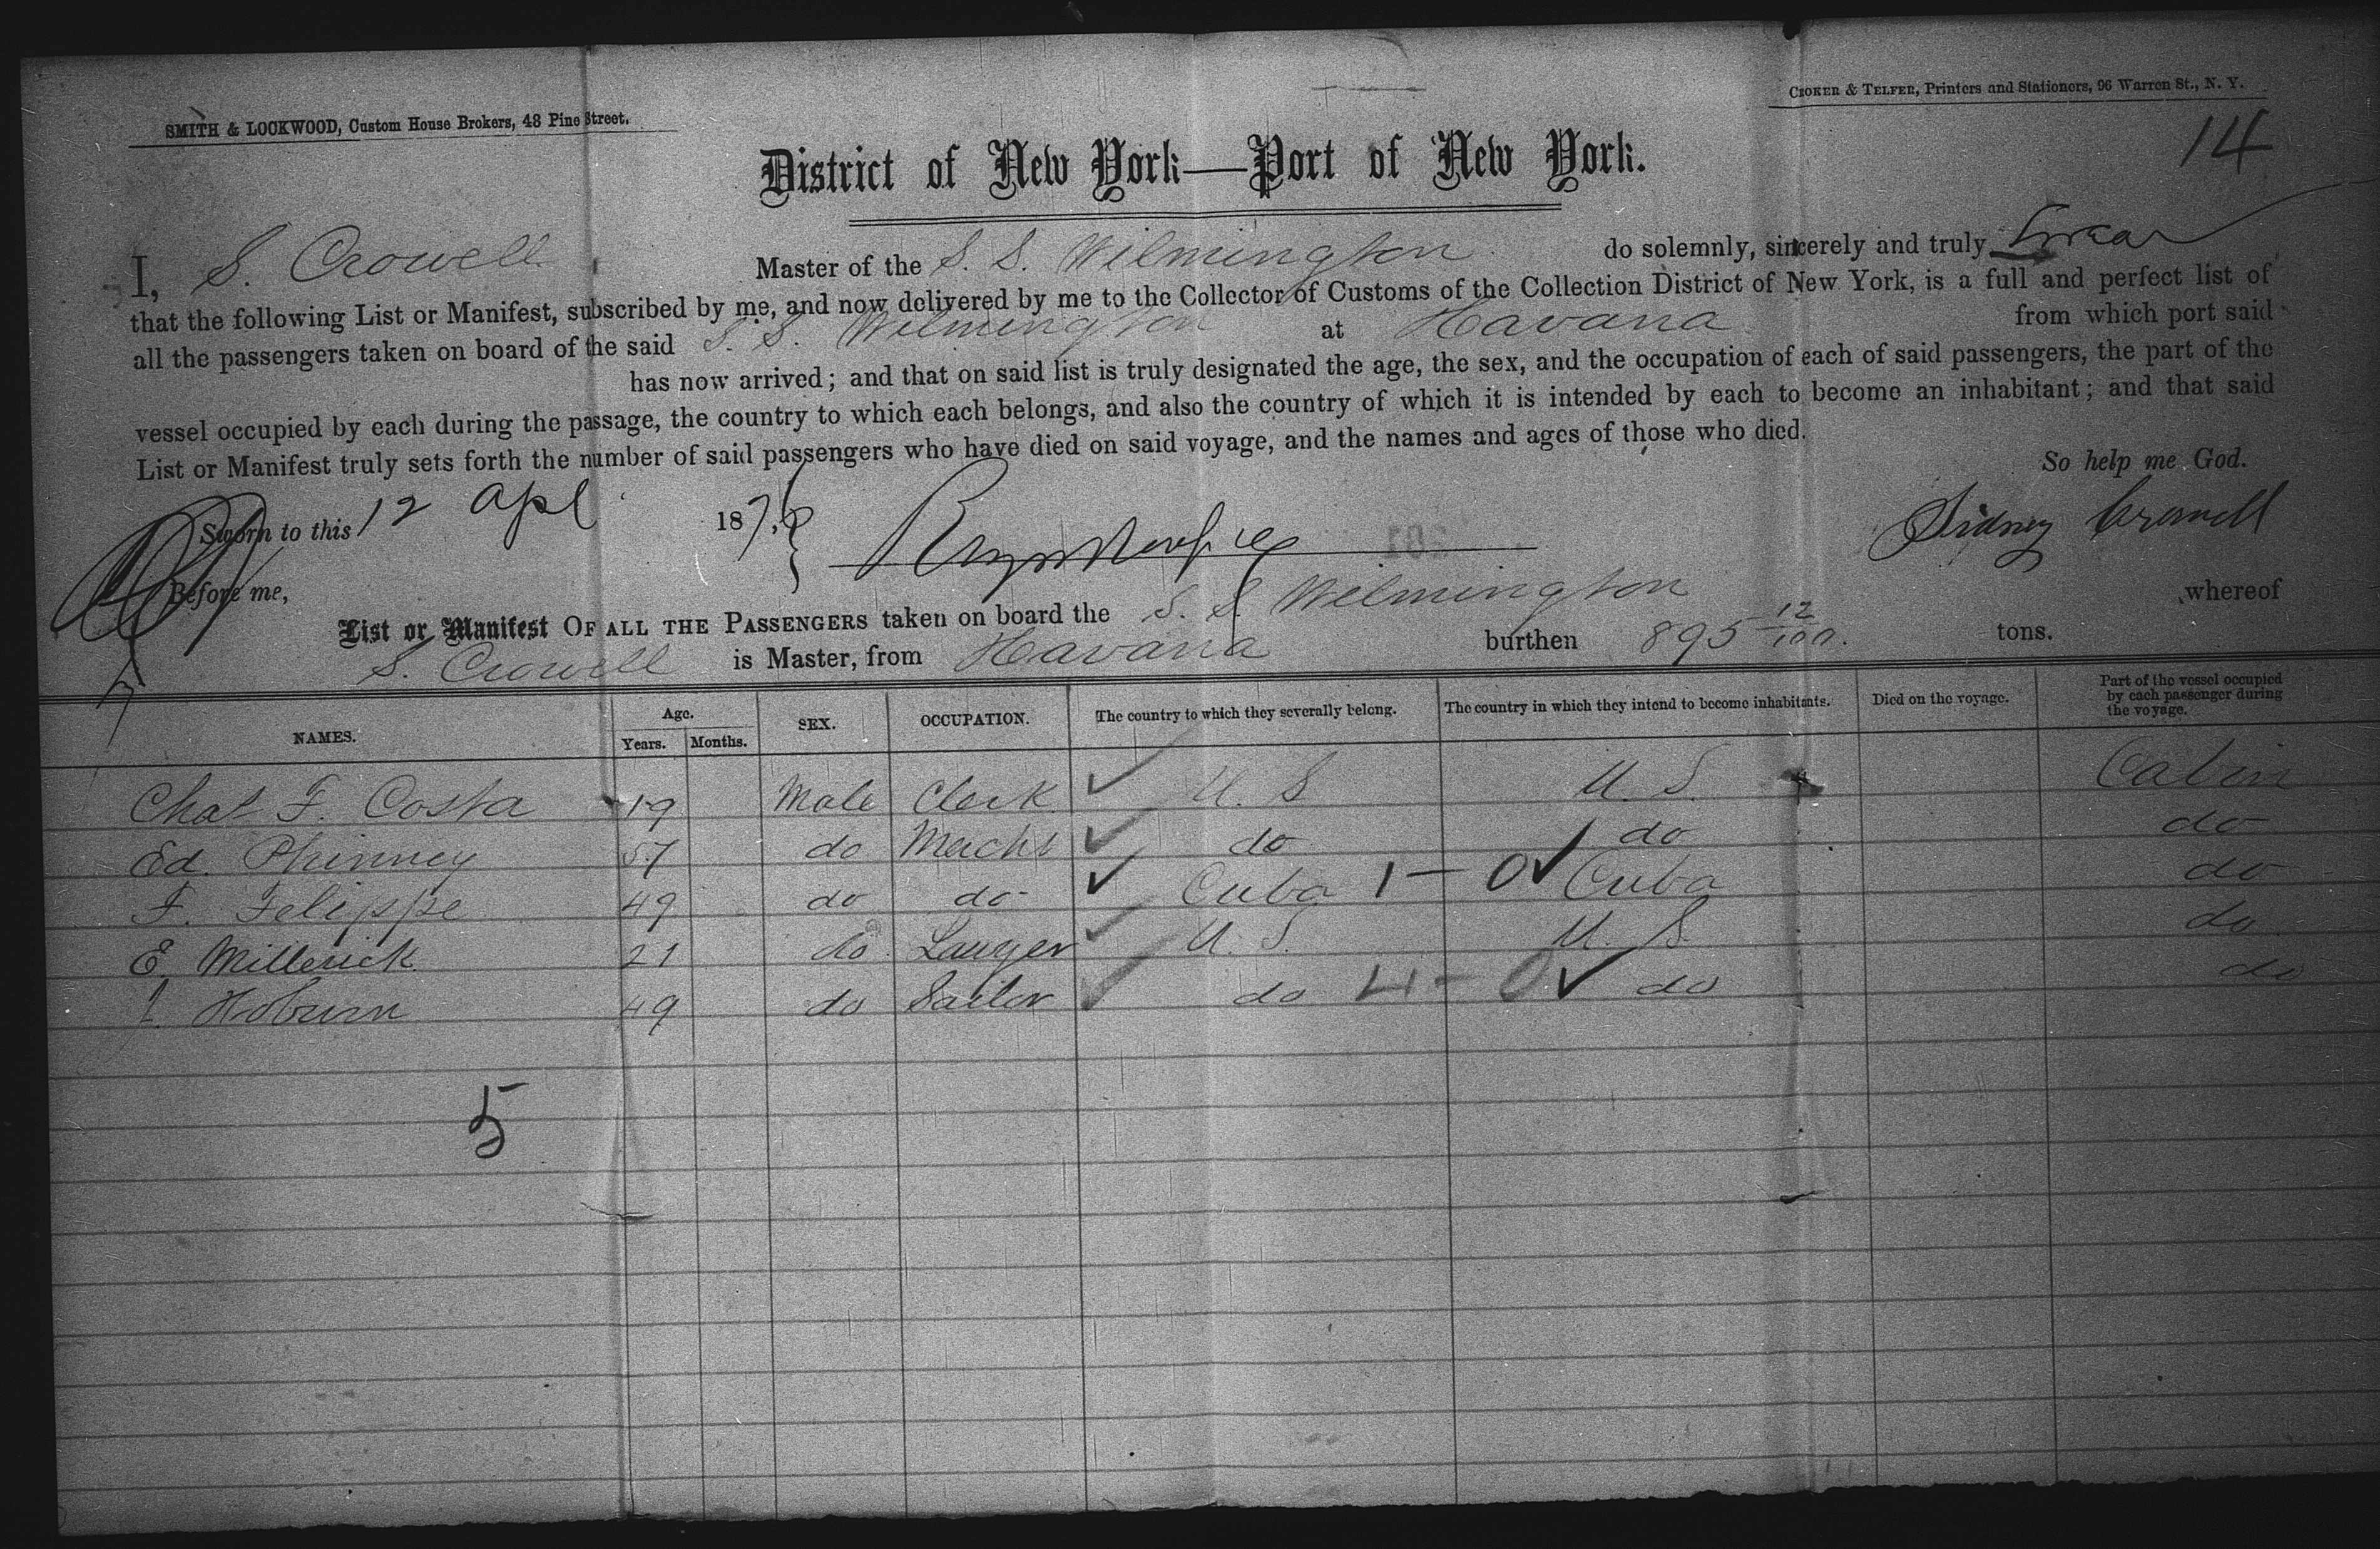 SMITH & LOCKWOOD, Custom House Brokers, 48 Pine Street.
CROKER & TELFER, Printers and Stationers, 96 Warren St., N. Y.
14
District of New York—Port of New York.
I, S. Crowell Master of the S. S. Wilmington do solemnly, sincerely and truly Swear
that the following List or Manifest, subscribed by me, and now delivered by me to the Collector of Customs of the Collection District of New York, is a full and perfect list of
all the passengers taken on board of the said S. S. Wilmington at Havana from which port said
has now arrived; and that on said list is truly designated the age, the sex, and the occupation of each of said passengers, the part of the
vessel occupied by each during the passage, the country to which each belongs, and also the country of which it is intended by each to become an inhabitant; and that said
List or Manifest truly sets forth the number of said passengers who have died on said voyage, and the names and ages of those who died.
So help me God.
Sworn to this 12 Apl 187
Sidney Crowell
Before me,
List or Manifest OF ALL THE PASSENGERS taken on board the S. S. Wilmington whereof
S. Crowell is Master, from Havana burthen 895 12/100 tons.
NAMES. Age. Years. Months. SEX. OCCUPATION. The country to which they severally belong. The country in which they intend to become inhabitants. Died on the voyage. Part of the vessel occupied by each passenger during the voyage.
Chas F. Costa 19 Male Clerk U. S U. S. Cabin
Ed. Phinney 57 do Macht do do do
F. Felippe 49 do do Cuba 1 - 0 Cuba do
E. Millerick 21 do Lawyer U. S. U. S. do
J. Hoburn 49 do Sailor do 4 - 0 do do
5